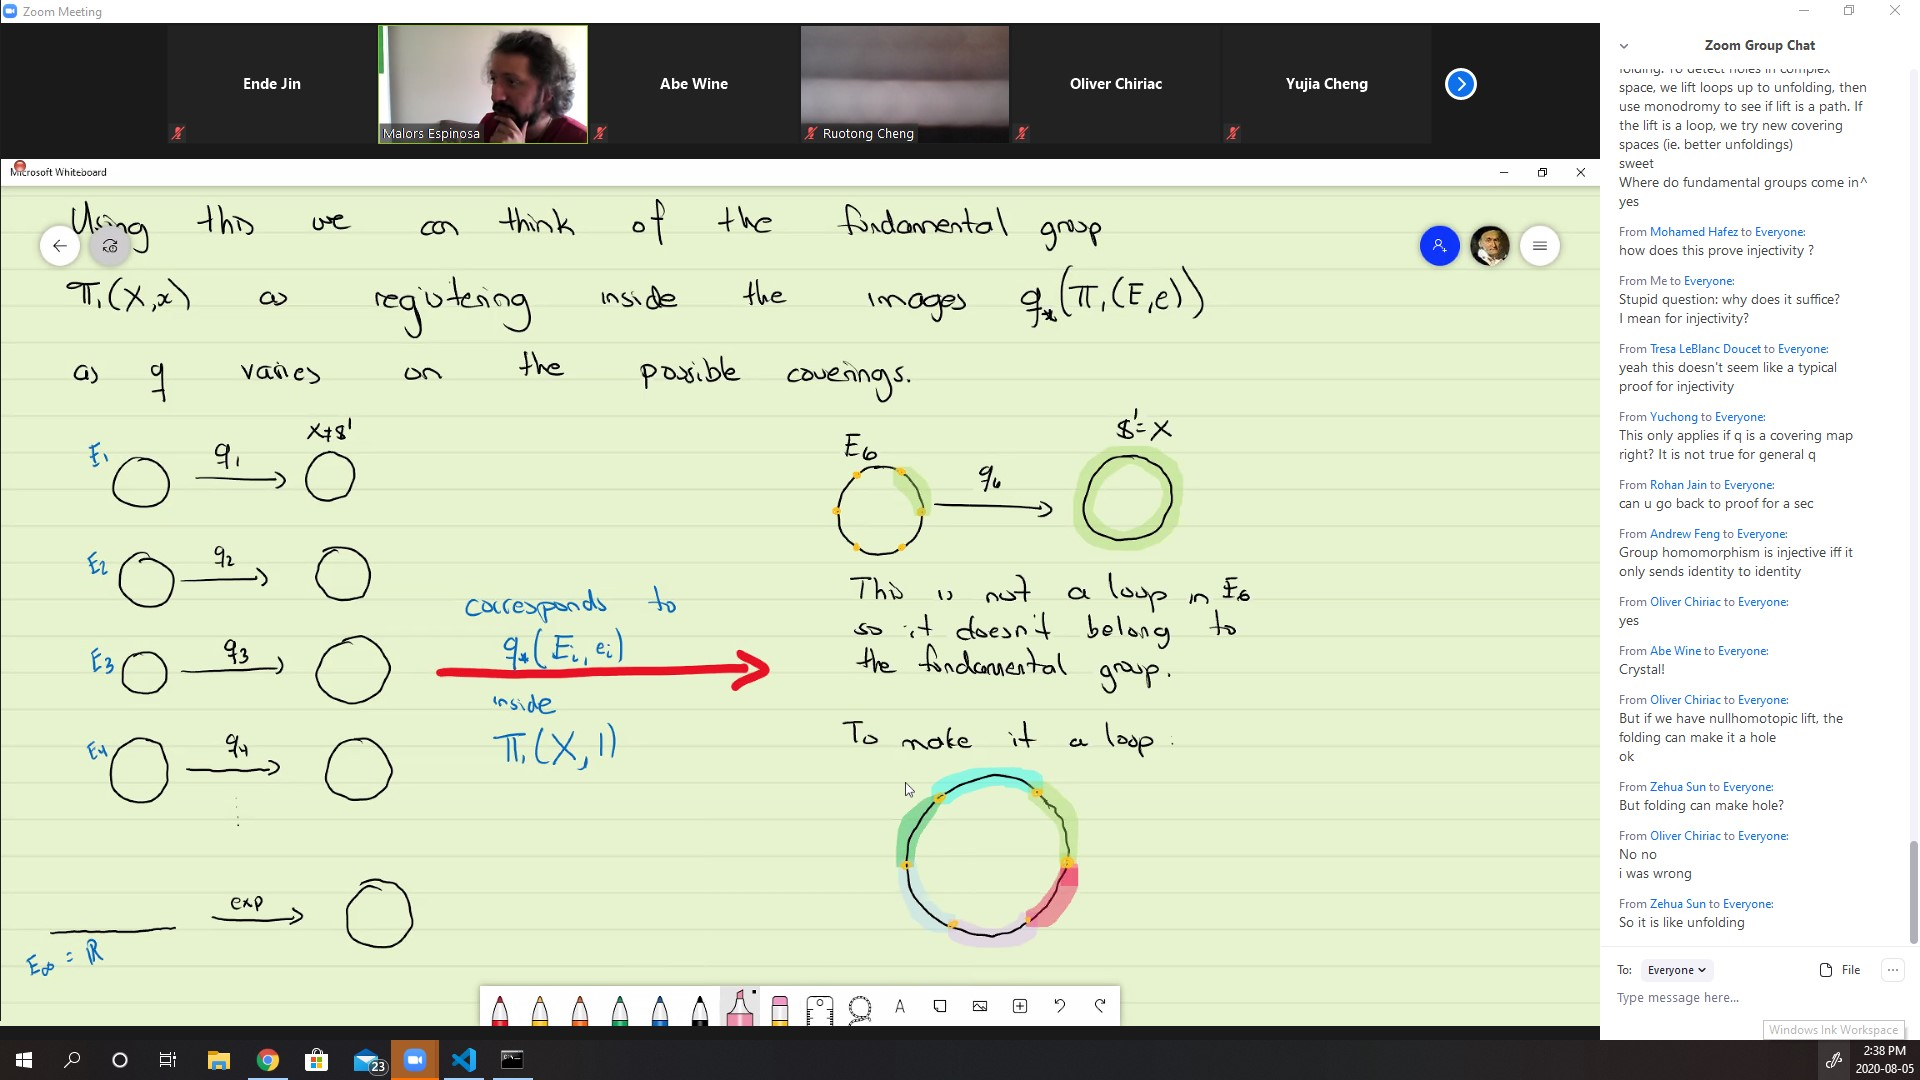 Zoom Meeting
Ende Jin
Malors Espinosa
Abe Wine
Ruotong Cheng
Oliver Chiriac
Yujia Cheng
Microsoft Whiteboard
Using this we can think of the fundamental group
π₁(X,x) as registering inside the images q*(π₁(E,e))
as q varies on the possible coverings.
E₁ q₁ X=$¹
E₂ q₂
E₃ q₃
E₄ q₄
exp
E∞ = ℝ
corresponds to
q*(Eᵢ, eᵢ)
inside
π₁(X,1)
E₆ q₆ $¹=X
This is not a loop in E₆
so it doesn't belong to
the fundamental group.
To make it a loop:
Zoom Group Chat
folding. To detect holes in complex
space, we lift loops up to unfolding, then
use monodromy to see if lift is a path. If
the lift is a loop, we try new covering
spaces (ie. better unfoldings)
sweet
Where do fundamental groups come in^
yes
From Mohamed Hafez to Everyone:
how does this prove injectivity ?
From Me to Everyone:
Stupid question: why does it suffice?
I mean for injectivity?
From Tresa LeBlanc Doucet to Everyone:
yeah this doesn't seem like a typical
proof for injectivity
From Yuchong to Everyone:
This only applies if q is a covering map
right? It is not true for general q
From Rohan Jain to Everyone:
can u go back to proof for a sec
From Andrew Feng to Everyone:
Group homomorphism is injective iff it
only sends identity to identity
From Oliver Chiriac to Everyone:
yes
From Abe Wine to Everyone:
Crystal!
From Oliver Chiriac to Everyone:
But if we have nullhomotopic lift, the
folding can make it a hole
ok
From Zehua Sun to Everyone:
But folding can make hole?
From Oliver Chiriac to Everyone:
No no
i was wrong
From Zehua Sun to Everyone:
So it is like unfolding
To: Everyone File
Type message here...
Windows Ink Workspace
23
2:38 PM
2020-08-05